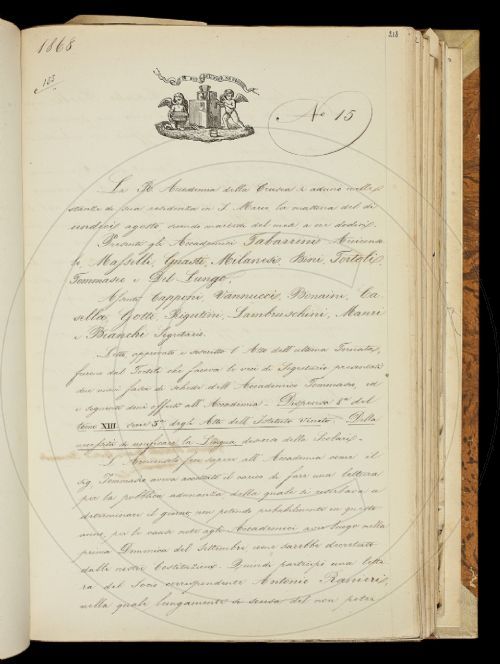 1868
218
133
No 15
La R. Accademia della Crusca si adunò nelle
stanze di sua residenza in S. Marco la mattina del dì
undici agosto secondo martedì del mese a ore dodici.
Presenti gli Accademici Tabarrini Arciconso-
lo, Maffei, Guasti, Milanesi, Bini, Tortoli,
Tommaseo e Del Lungo.
Assenti Capponi, Vannucci, Bonaini, Ca-
sella, Gotti, Rigutini, Lambruschini, Mauri
e Bianchi Segretario.
Letto, approvato e soscritto l'Atto dell'ultima Tornata,
furono dal Tortoli che faceva le veci di Segretario presentati
due nuovi fasci di schede dell'Accademico Tommaseo, ed
i seguenti doni offerti all'Accademia. Dispensa 8a del
tomo XIII serie 3a degli Atti dell'Istituto Veneto. Della
necessità di unificare la Lingua discorso dello Scolari.
L'Arciconsolo fece sapere all'Accademia come il
sig. Tommaseo aveva accettato il carico di fare una lettura
per la pubblica adunanza della quale si restava a
determinare il giorno non potendo probabilmente in questo
anno, per le cause note agli Accademici aver luogo nella
prima Domenica del Settembre come sarebbe decretato
dalle nostre Costituzioni. Quindi partecipò una lette-
ra del Socio corrispondente Antonio Ranieri,
nella quale lungamente si scusa del non poter